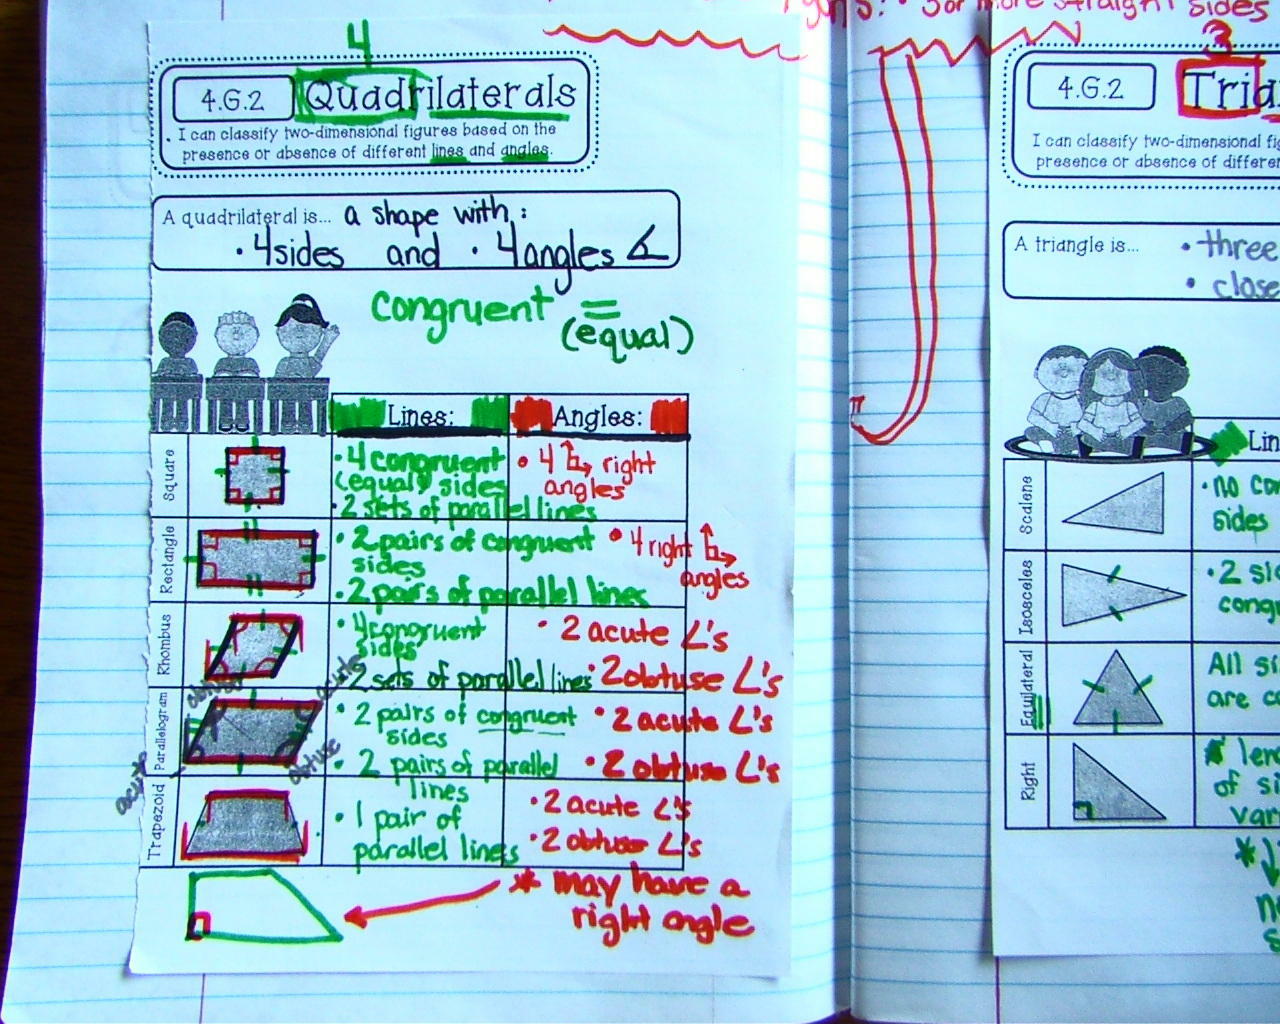 3 or more straight sides
4
4.G.2 Quadrilaterals
I can classify two-dimensional figures based on the
presence or absence of different lines and angles.
A quadrilateral is... a shape with:
• 4 sides and • 4 angles
congruent =
(equal)
Lines: Angles:
Square
• 4 congruent
(equal) sides
• 2 sets of parallel lines
• 4 right
angles
Rectangle
• 2 pairs of congruent
sides
• 2 pairs of parallel lines
• 4 right
angles
Rhombus
• 4 congruent
sides
• 2 sets of parallel lines
• 2 acute ∠'s
• 2 obtuse ∠'s
Parallelogram
obtuse
acute
acute
obtuse
• 2 pairs of congruent
sides
• 2 pairs of parallel
lines
• 2 acute ∠'s
• 2 obtuse ∠'s
Trapezoid
• 1 pair of
parallel lines
• 2 acute ∠'s
• 2 obtuse ∠'s
* may have a
right angle
3
4.G.2 Tria
I can classify two-dimensional fig
presence or absence of differen
A triangle is... • three
• close
Lin
Scalene
• no con
sides
Isosceles
• 2 sid
cong
Equilateral
All si
are c
Right
leng
of si
var
*